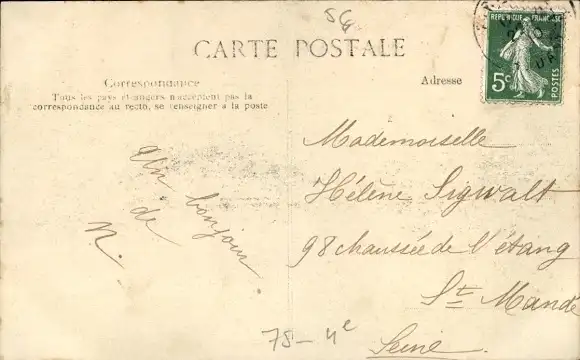 56
CARTE POSTALE
Correspondance
Tous les pays étrangers n'acceptent pas la
correspondance au recto, se renseigner à la poste
Adresse
REPUBLIQUE FRANÇAISE
5c
POSTES
Un bonjour
de
N.
Mademoiselle
Hélène Sigwalt
98 chaussée de l'étang
St. Mandé
Seine.
78 - 4e